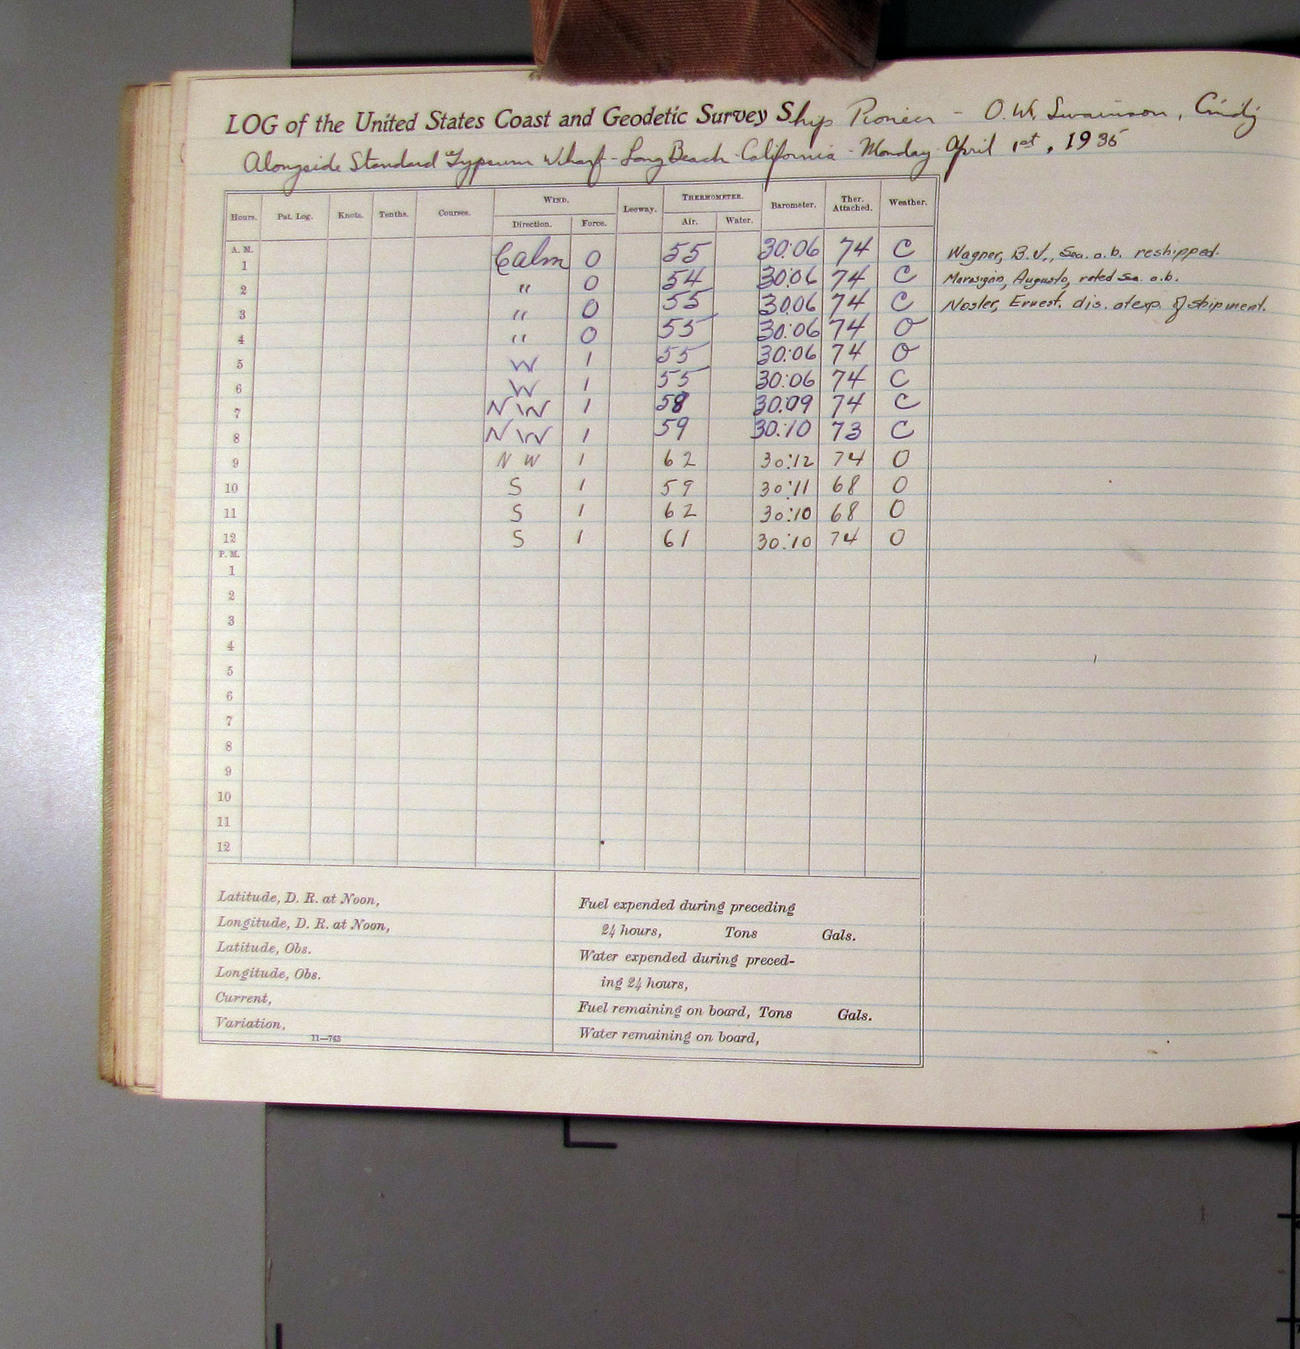 LOG of the United States Coast and Geodetic Survey Ship Pioneer - O. W. Swainson, Cmdg
Alongside Standard Gypsum Wharf - Long Beach - California - Monday April 1st, 1935
Hours. Pat. Log. Knots. Tenths. Courses. WIND. Leeway. THERMOMETER. Barometer. Ther. Attached. Weather.
Direction. Force. Air. Water.
A. M.
1 Calm 0 55 30:06 74 C Wagner, B.V., Sea. a.b. reshipped.
2 " 0 54 30:06 74 C Marasigan, Augusto, rated Sea. a.b.
3 " 0 55 30:06 74 C Nosler, Ernest. dis. at exp. of shipment.
4 " 0 55 30:06 74 O
5 W 1 55 30:06 74 O
6 W 1 55 30:06 74 C
7 NW 1 58 30:09 74 C
8 NW 1 59 30:10 73 C
9 NW 1 62 30:12 74 O
10 S 1 59 30:11 68 O
11 S 1 62 30:10 68 O
12 S 1 61 30:10 74 O
P. M.
1
2
3
4
5
6
7
8
9
10
11
12
Latitude, D. R. at Noon,
Longitude, D. R. at Noon,
Latitude, Obs.
Longitude, Obs.
Current,
Variation,
11—763
Fuel expended during preceding
24 hours, Tons Gals.
Water expended during preced-
ing 24 hours,
Fuel remaining on board, Tons Gals.
Water remaining on board,